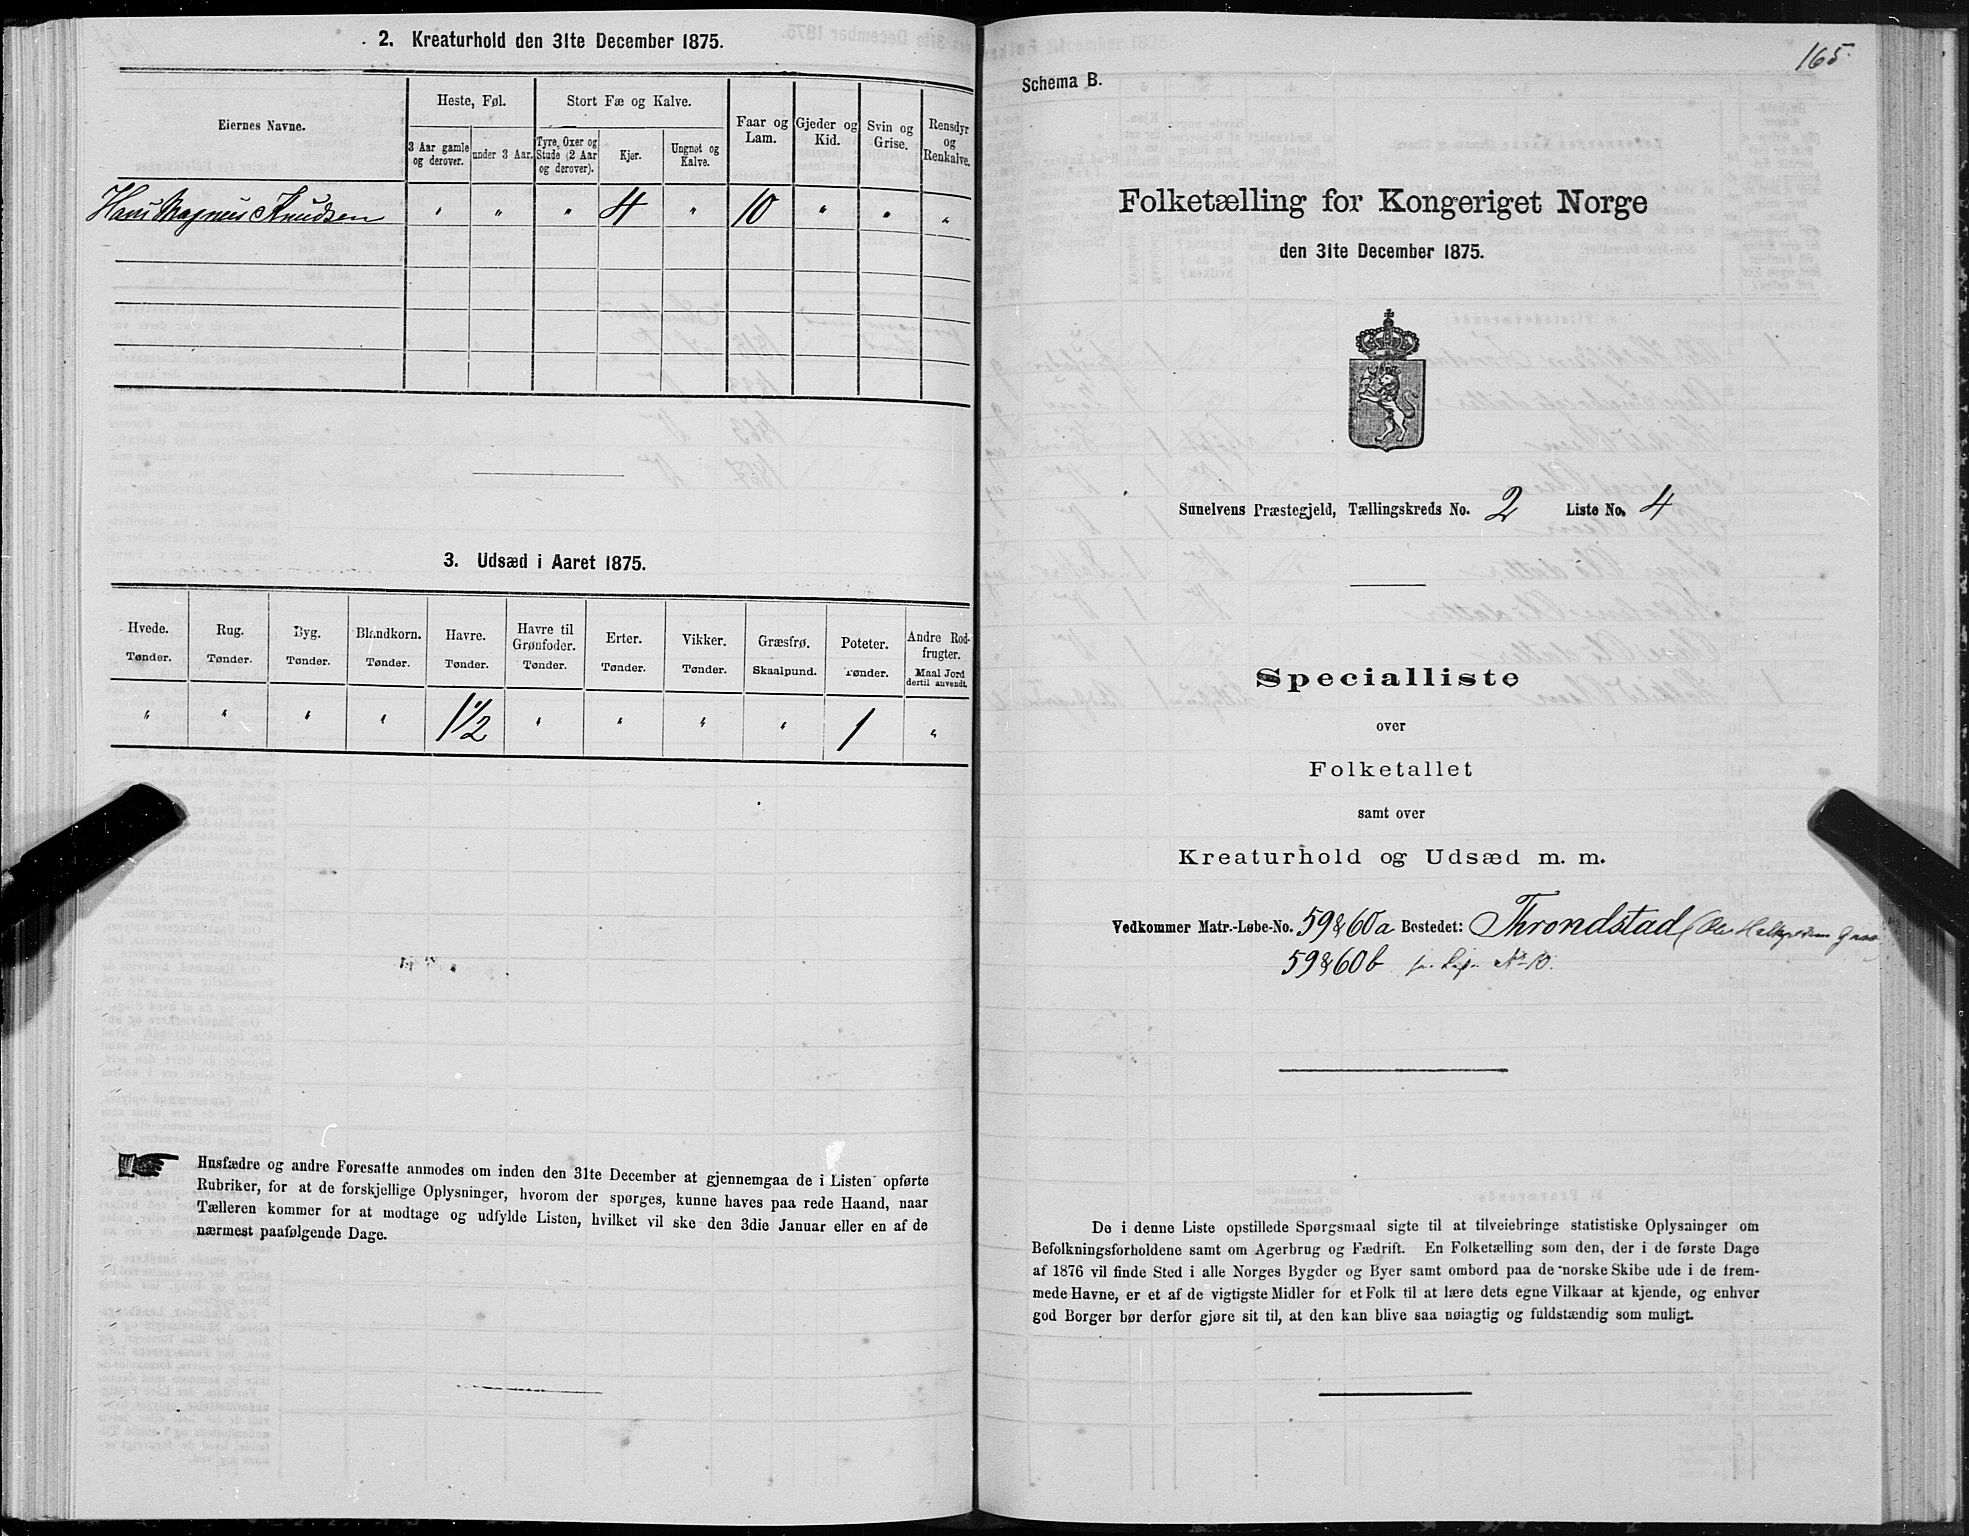 2. Kreaturhold den 31te December 1875.
Eiernes Navne.
Heste, Føl.
Stort Fæ og Kalve.
Faar og Lam.
Gjeder og Kid.
Svin og Grise.
Rensdyr og Renkalve.
3 Aar gamle og derover.
under 3 Aar.
Tyre, Oxer og Stude (2 Aar og derover).
Kjør.
Ungnøt og Kalve.
Hans Magnus Knudsen " " " 4 " 10 " " "
3. Udsæd i Aaret 1875.
Hvede. Rug. Byg. Blandkorn. Havre. Havre til Grønfoder. Erter. Vikker. Græsfrø. Poteter. Andre Rodfrugter.
Tønder. Tønder. Tønder. Tønder. Tønder. Tønder. Tønder. Tønder. Skaalpund. Tønder. Maal Jord dertil anvendt.
" " " " 1 1/2 " " " " 1 "
Husfædre og andre Foresatte anmodes om inden den 31te December at gjennemgaa de i Listen opførte
Rubriker, for at de forskjellige Oplysninger, hvorom der spørges, kunne haves paa rede Haand, naar
Tælleren kommer for at modtage og udfylde Listen, hvilket vil ske den 3die Januar eller en af de
nærmest paafølgende Dage.
165
Schema B.
Folketælling for Kongeriget Norge
den 31te December 1875.
Sunelvens Præstegjeld, Tællingskreds No. 2 Liste No. 4
Specialliste
over
Folketallet
samt over
Kreaturhold og Udsæd m. m.
Vedkommer Matr.-Løbe-No. 59 & 60a Bostedet: Throndstad
59 & 60b No 10.
De i denne Liste opstillede Spørgsmaal sigte til at tilveiebringe statistiske Oplysninger om
Befolkningsforholdene samt om Agerbrug og Fædrift. En Folketælling som den, der i de første Dage
af 1876 vil finde Sted i alle Norges Bygder og Byer samt ombord paa de norske Skibe ude i de frem-
mede Havne, er et af de vigtigste Midler for et Folk til at lære dets egne Vilkaar at kjende, og enhver
god Borger bør derfor gjøre sit til, at den kan blive saa nøiagtig og fuldstændig som muligt.